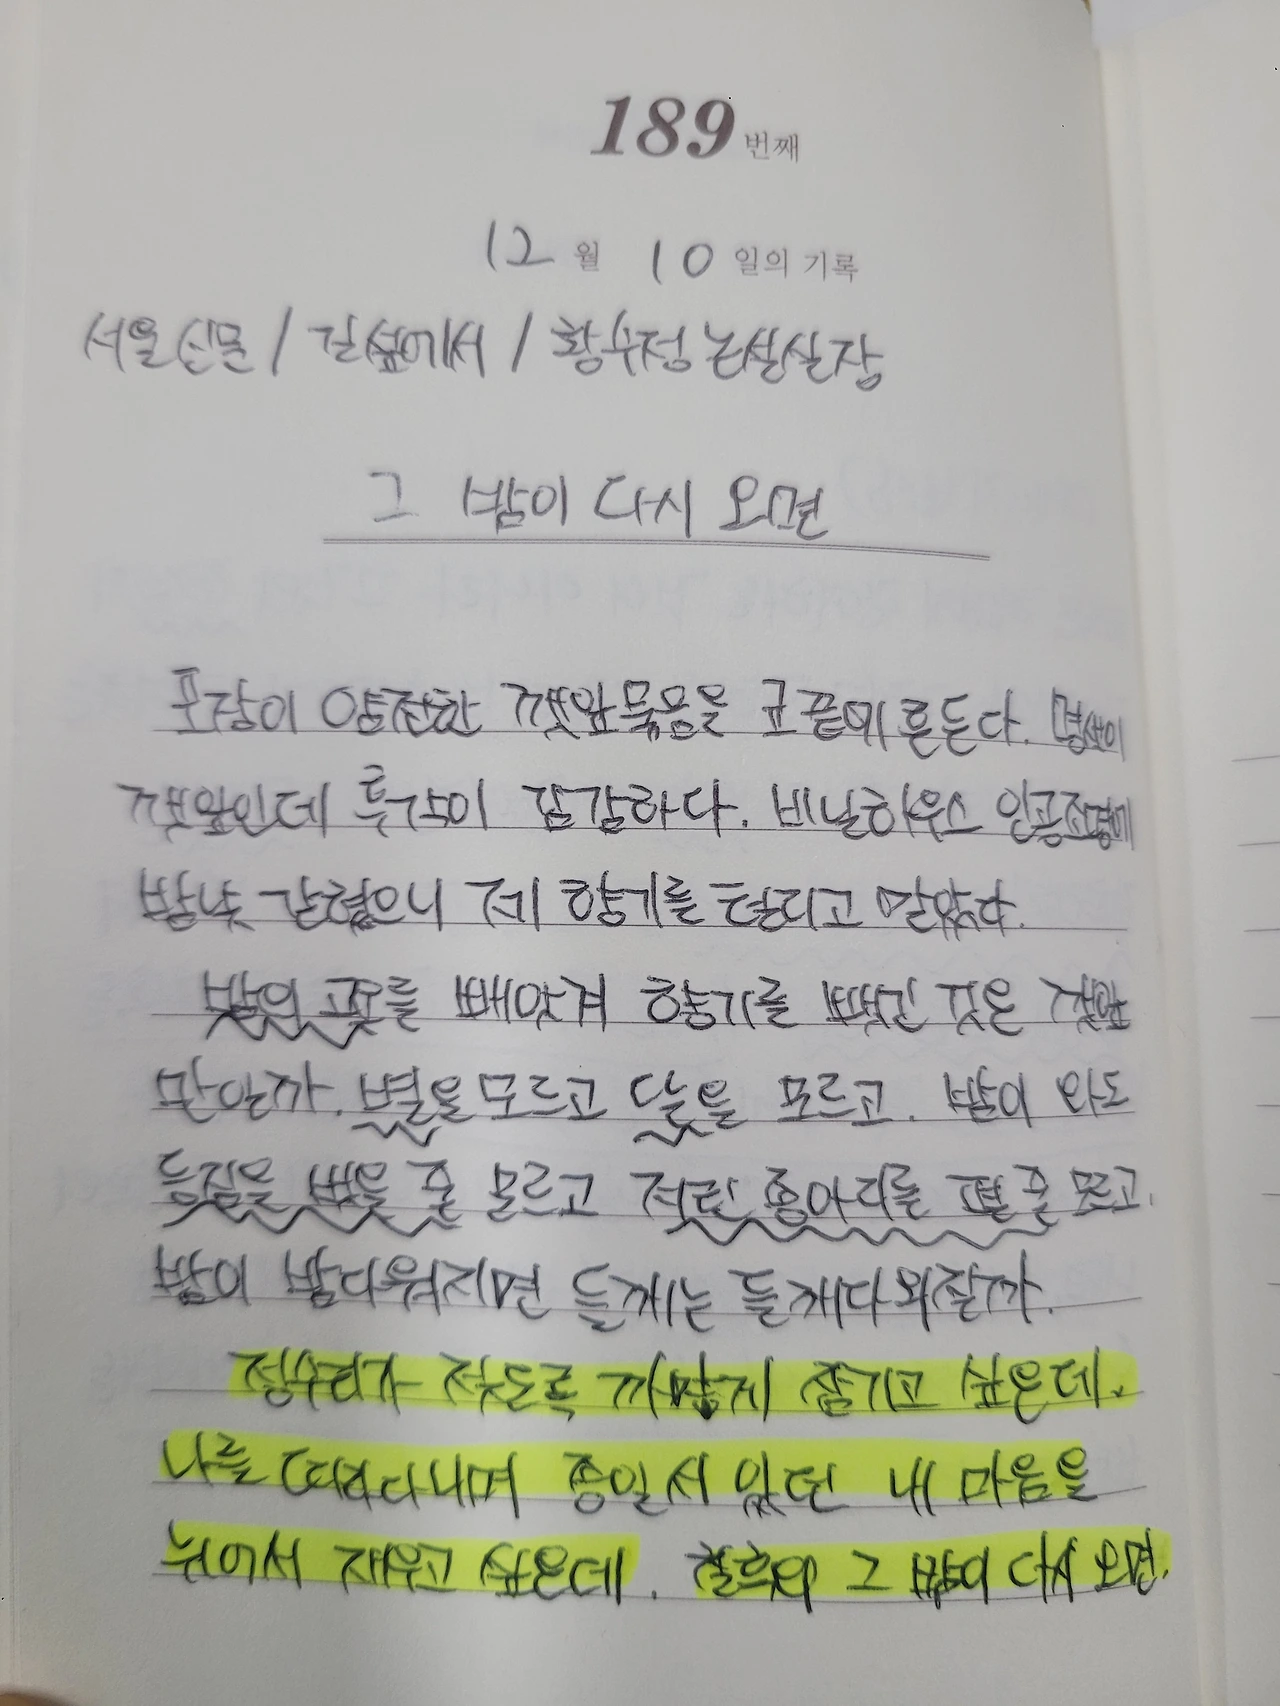 189번째
12월 10일의 기록
서울신문 / 길섶에서 / 황수정 논설실장
그 밤이 다시 오면
포장이 얌전한 깻잎묶음을 코끝에 흔든다. 명색이
깻잎인데 후각이 깜깜하다. 비닐하우스 인공조명에
밤낮 갇혔으니 제 향기를 털리고 말았다.
밤의 곳을 빼앗겨 향기를 뺏긴 것은 깻잎
만일까. 별을 모르고 달을 모르고. 밤이 와도
등짐을 벗을 줄 모르고 저린 종아리를 펼 줄 모르고.
밤이 밤다워지면 들깨는 들깨다워질까.
정수리가 젖도록 까맣게 잠기고 싶은데.
나를 따라다니며 종일 서 있던 내 마음을
뉘어서 재우고 싶은데. 칠흑의 그 밤이 다시 오면.